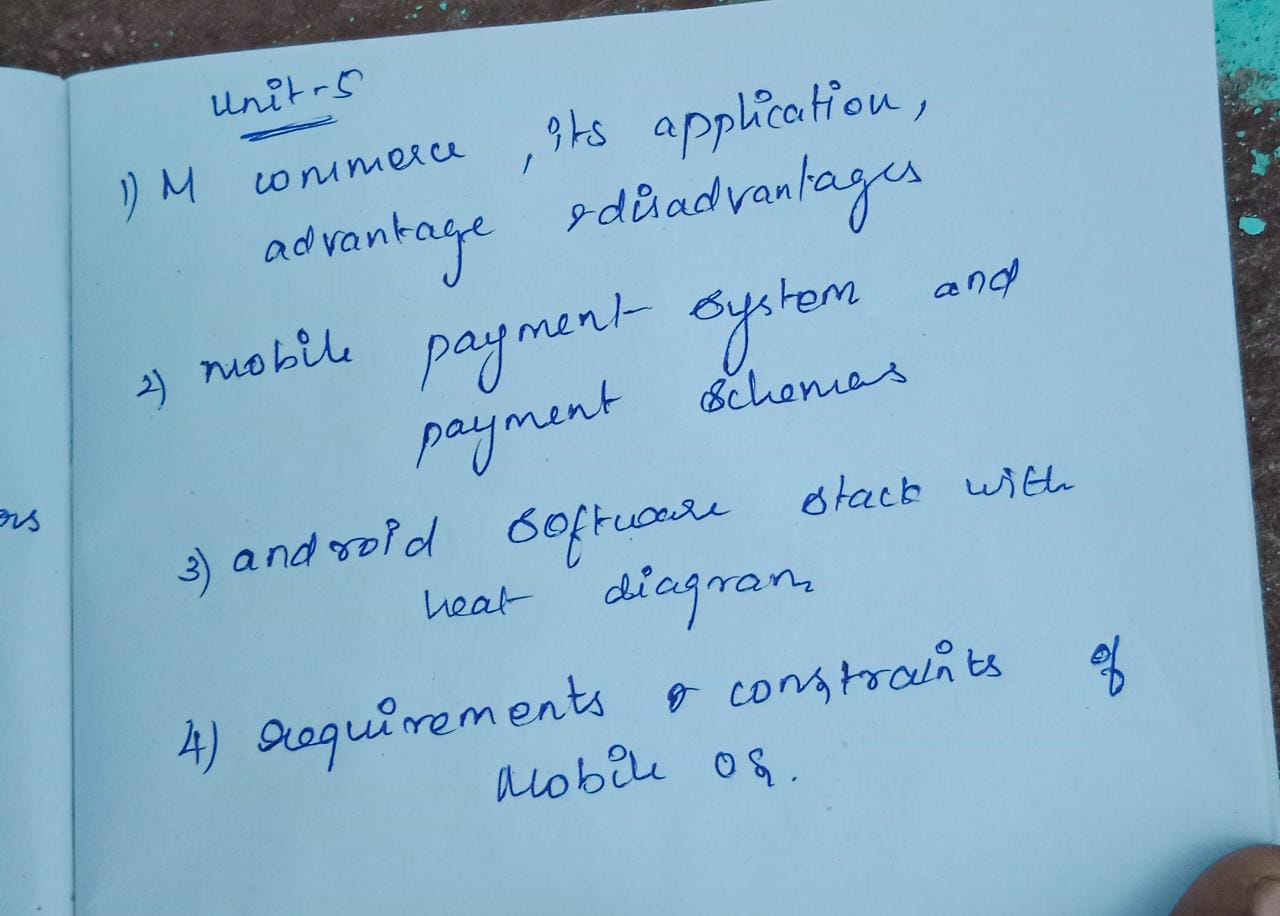 Unit-5
1) M commerce, its application,
advantage & disadvantages
2) mobile payment system and
payment schemes
3) android software stack with
neat diagram
4) requirements & constraints of
Mobile OS.